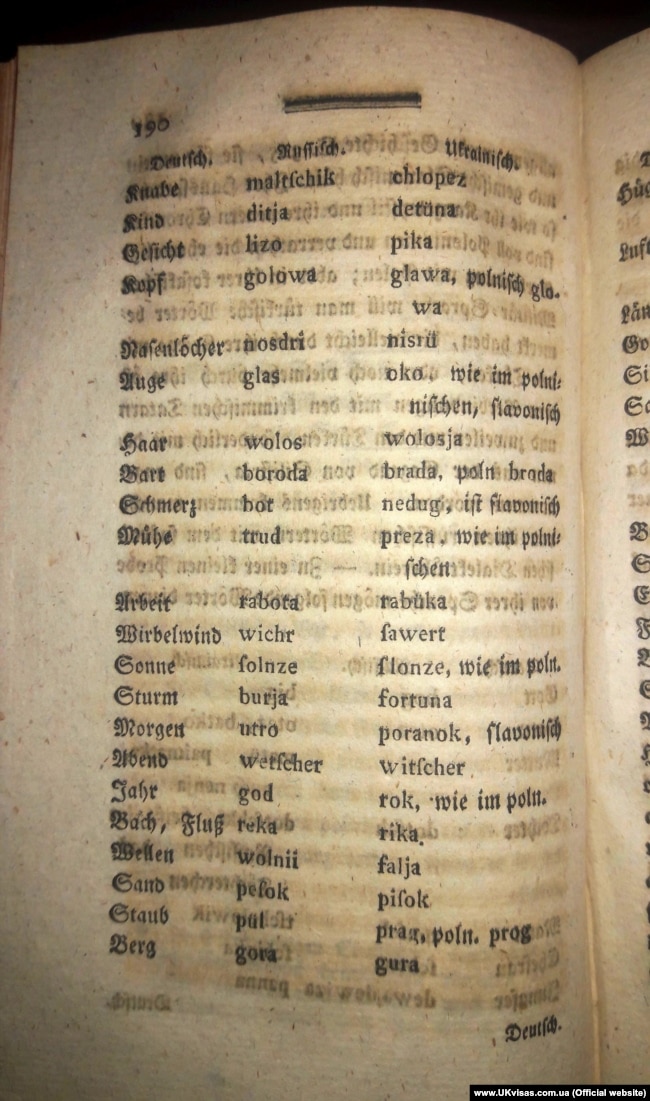 190
Deutsch. Russisch. Ukrainisch.
Knabe maltſchik chlopez
Kind ditja detüna
Geſicht lizo pika
Kopf golowa glawa, polniſch glo-
wa
Naſenlöcher nosdri nisrü
Auge glas oko, wie im polni-
niſchen, ſlavoniſch
Haar wolos wolosja
Bart boroda brada, poln broda
Schmerz bot nedug, iſt ſlavoniſch
Mühe trud preza, wie im polni-
ſchen
Arbeit rabota rabüka
Wirbelwind wichr ſawert
Sonne ſolnze ſlonze, wie im poln.
Sturm burja fortuna
Morgen utro poranok, ſlavoniſch
Abend wetſcher witſcher
Jahr god rok, wie im poln.
Bach, Fluß reka rika.
Wellen wolnii falja
Sand peſok piſok
Staub pül prag, poln. prog
Berg gora gura
Deutſch.
Hüg
Luft
Län
Go
Si
Sc
W
www.UKvisas.com.ua (Official website)